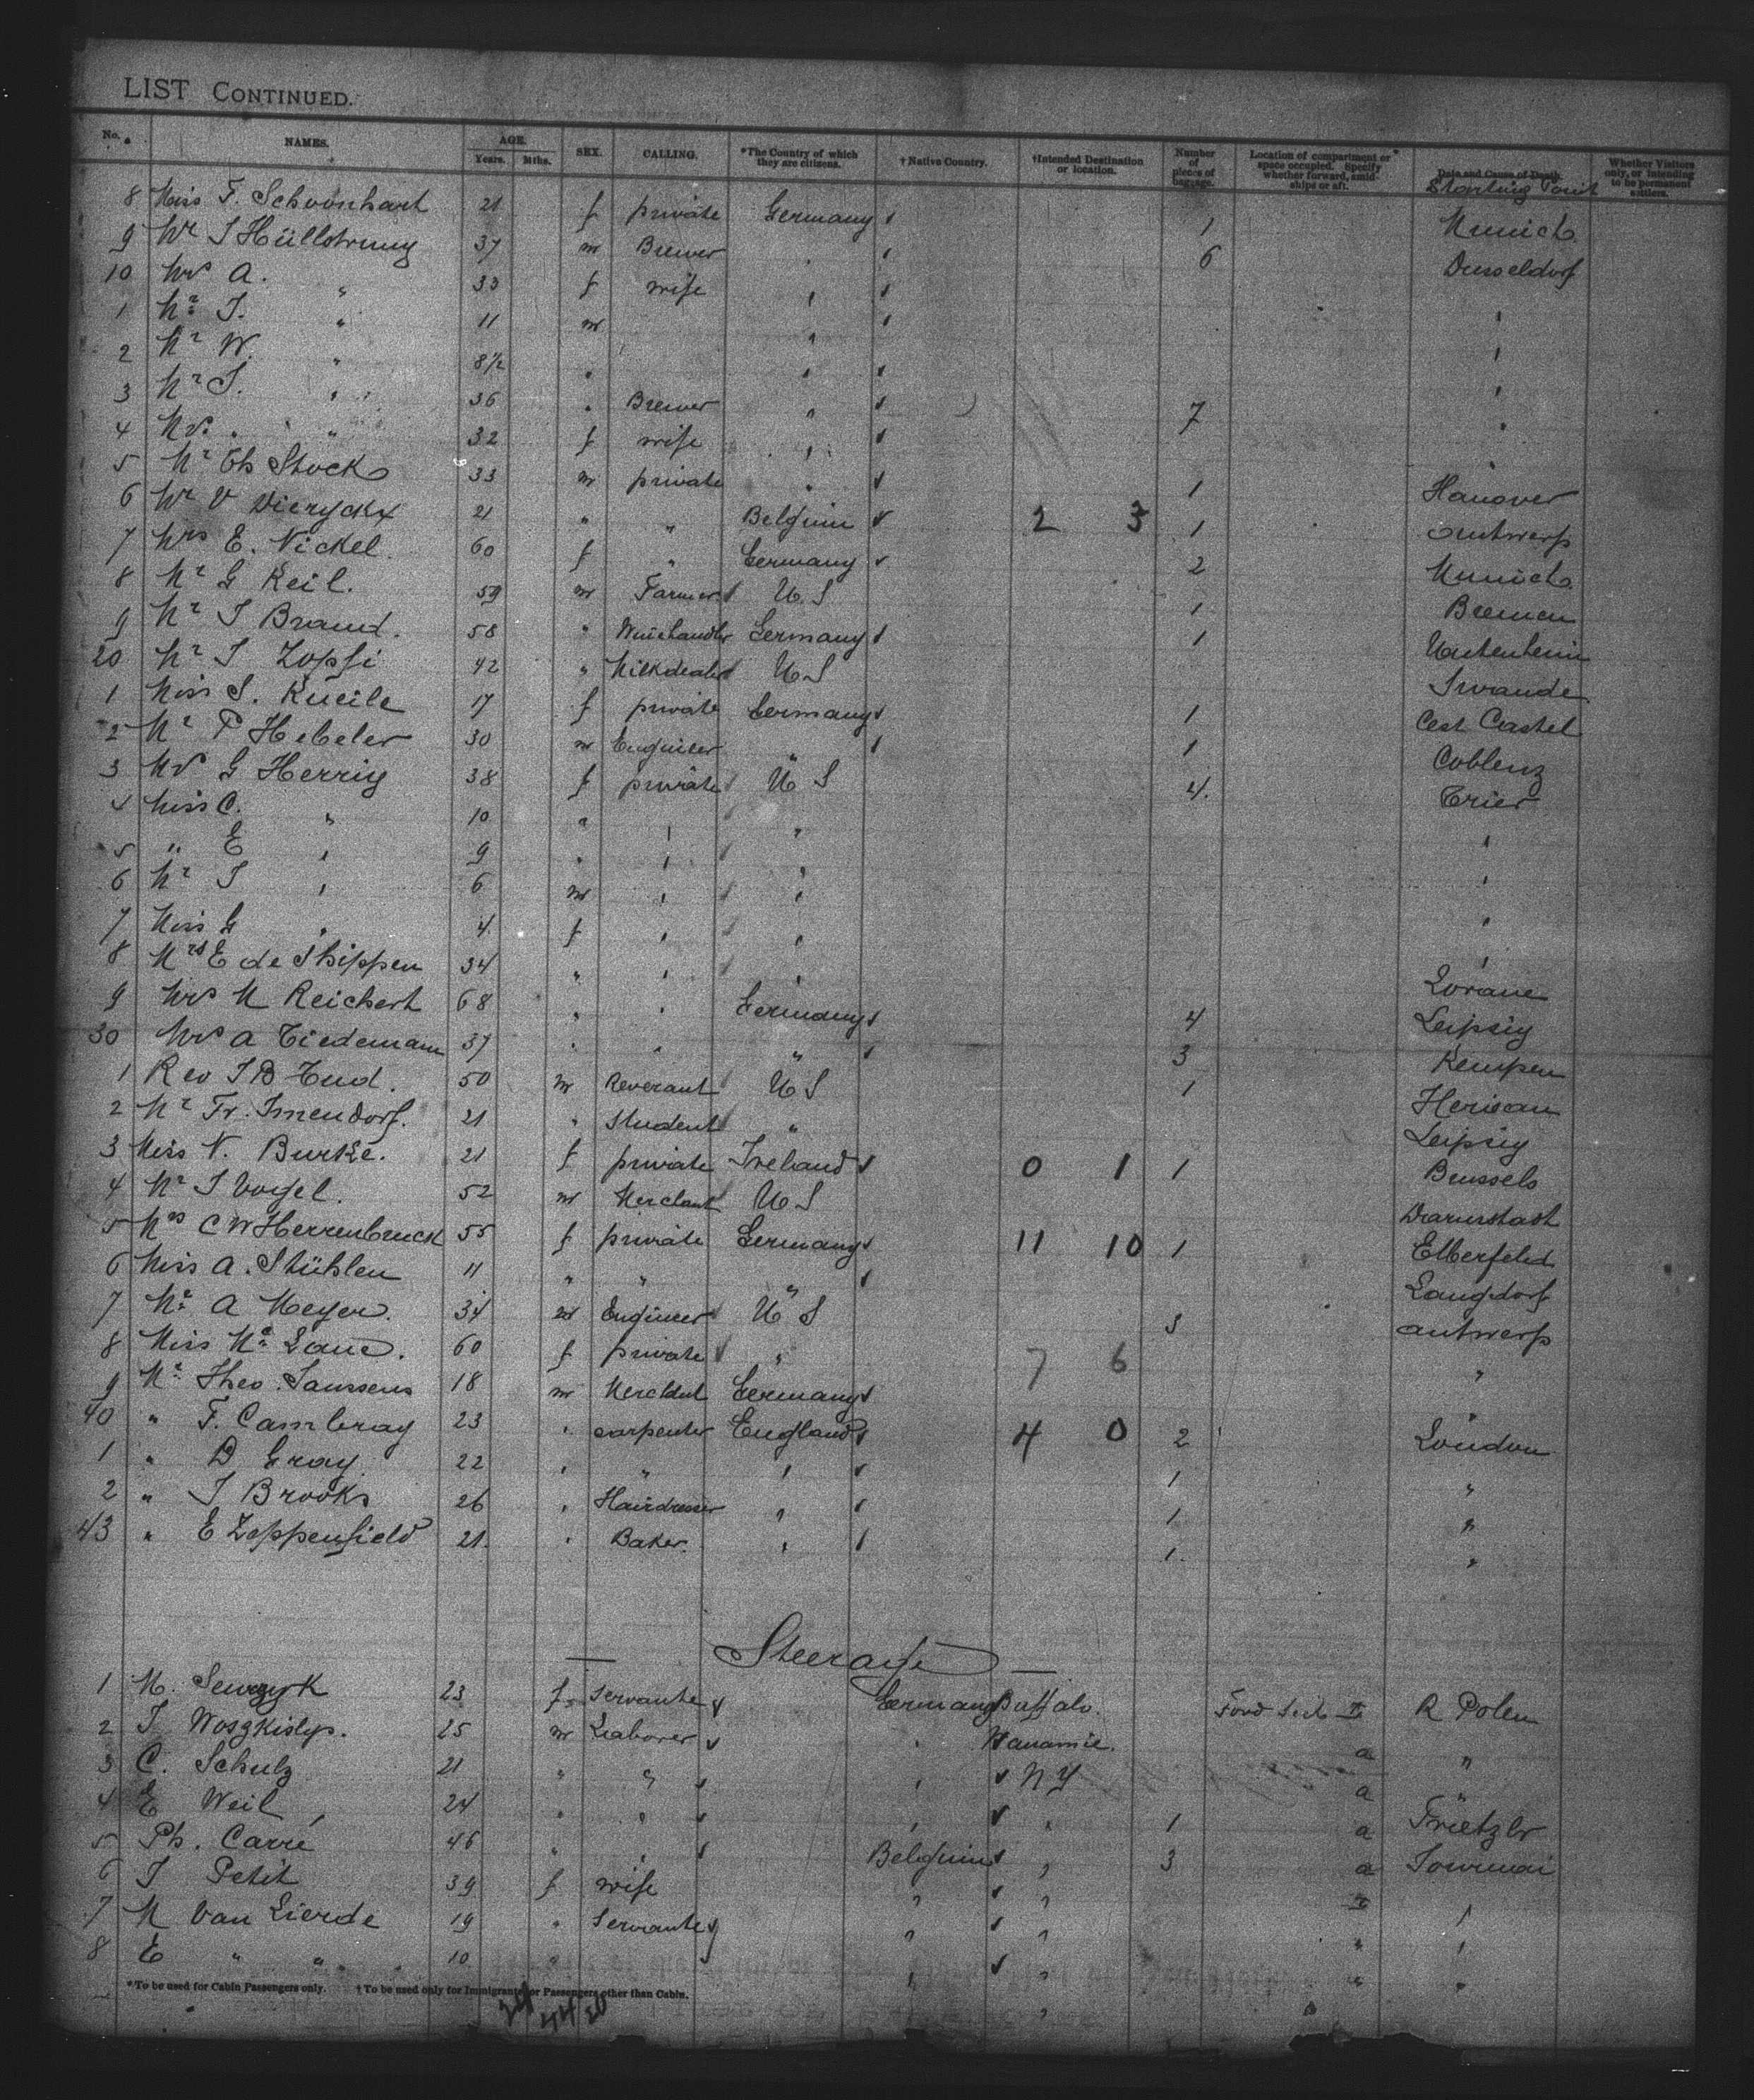 LIST CONTINUED.
No. NAMES. AGE. Years. Mths. SEX. CALLING. *The Country of which they are citizens. †Native Country. †Intended Destination or location. Number of pieces of baggage. Location of compartment or space occupied. Specify whether forward, amidships or aft. Date and Cause of Death. Whether Visitors only, or intending to be permanent settlers.
Starting Point
8 Miss F. Schoonhart 21 f private Germany 1 Munich
9 Mr J Hüllstrung 37 m Brewer " 6 Dusseldorf
10 Mrs A. " 33 f wife " "
1 Mr J. " 11 m " "
2 Mr W. " 8½ " " "
3 Mr J. " 36 " Brewer " 7 "
4 Mrs " " 32 f wife " "
5 Mr Th Stock 33 m private " 1 Hanover
6 Mr V Dieryckx 21 " " Belgium 2 3 1 Antwerp
7 Mrs E. Nickel. 60 f " Germany 2 Munich
8 Mr G Keil. 59 m Farmer U.S 1 Bremen
9 Mr J Brand. 58 " Winehandler Germany 1
20 Mr J Zopfi 42 " Milkdealer U S
1 Miss S. Kneile 17 f private Germany 1
2 Mr P Hebeler 30 m Engineer " 1 Coblenz
3 Mrs G Herrig 38 f private U S 4. Trier
4 Miss C. " 10 " " " "
5 " E " 9 " " " "
6 Mr J " 6 m " " "
7 Miss G " 4 f " " "
8 Mrs E de Shippen 34 " " " Lorane
9 Mrs M Reichert 68 " " Germany 4 Leipsig
30 Mrs A Tiedemann 37 " " " 3 Kempen
1 Rev J B Tud. 50 m Reverant U S 1 Herisau
2 Mr Fr. Imendorf. 21 " Student " Leipsig
3 Miss N. Burke. 21 f private Ireland 0 1 1 Brussels
4 Mr J Vogel. 52 m Merchant U S Darmstadt
5 Mrs C W Herrenbruck 55 f private Germany 11 10 1 Elberfeld
6 Miss A. Stühlen 11 " " " Langdorf
7 Mr A Meyer. 34 m Engineer U S 3 Antwerp
8 Miss Mc Lane. 60 f private " 7 6 "
9 Mr Theo. Janssens 18 m Merchant Germany "
40 " F. Cambray 23 " carpenter England 4 0 2 London
1 " D Gray 22 " " " 1 "
2 " J Brooks 26 " Hairdresser " 1 "
43 " E Zeppenfield 21. " Baker. " 1. "
— Steerage —
1 M. 23 f. Servante Germany Buffalo. I R Polen
2 J 25 m Laborer " Wanamie. a "
3 C. Schulz 21 " " " N Y a "
4 E Weil 24 " " " " 1 a Frietzlr
5 Ph. Carré 46 " " Belgium " 3 a Tournai
6 J Petit 39 f wife " " I "
7 M Van Lierde 19 " Servante " " " "
8 E " " 10 " " " " "
*To be used for Cabin Passengers only. †To be used only for Immigrants or Passengers other than Cabin.